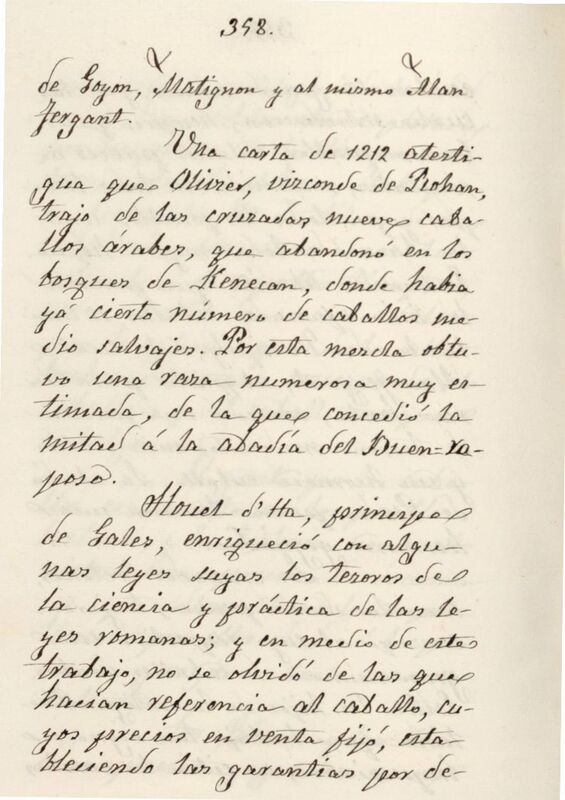 398.
de Goyon, Matignon y al mismo Alan
Fergant.
Una carta de 1212 atesti-
gua que Olivier, vizconde de Rohan,
trajo de las cruzadas nueve caba-
llos árabes, que abandonó en los
bosques de Kenecan, donde habia
yá cierto número de caballos me-
dio salvajes. Por esta mezcla obtu-
vo una raza numerosa muy es-
timada, de la que concedió la
mitad á la abadía del Buen-re-
poso.
Houel d'Ha, principe
de Gales, enriqueció con algu-
nas leyes suyas los tesoros de
la ciencia y práctica de las le-
yes romanas; y en medio de este
trabajo, no se olvidó de las que
hacian referencia al caballo, cu-
yos precios en venta fijó, esta-
bleciendo las garantias por de-